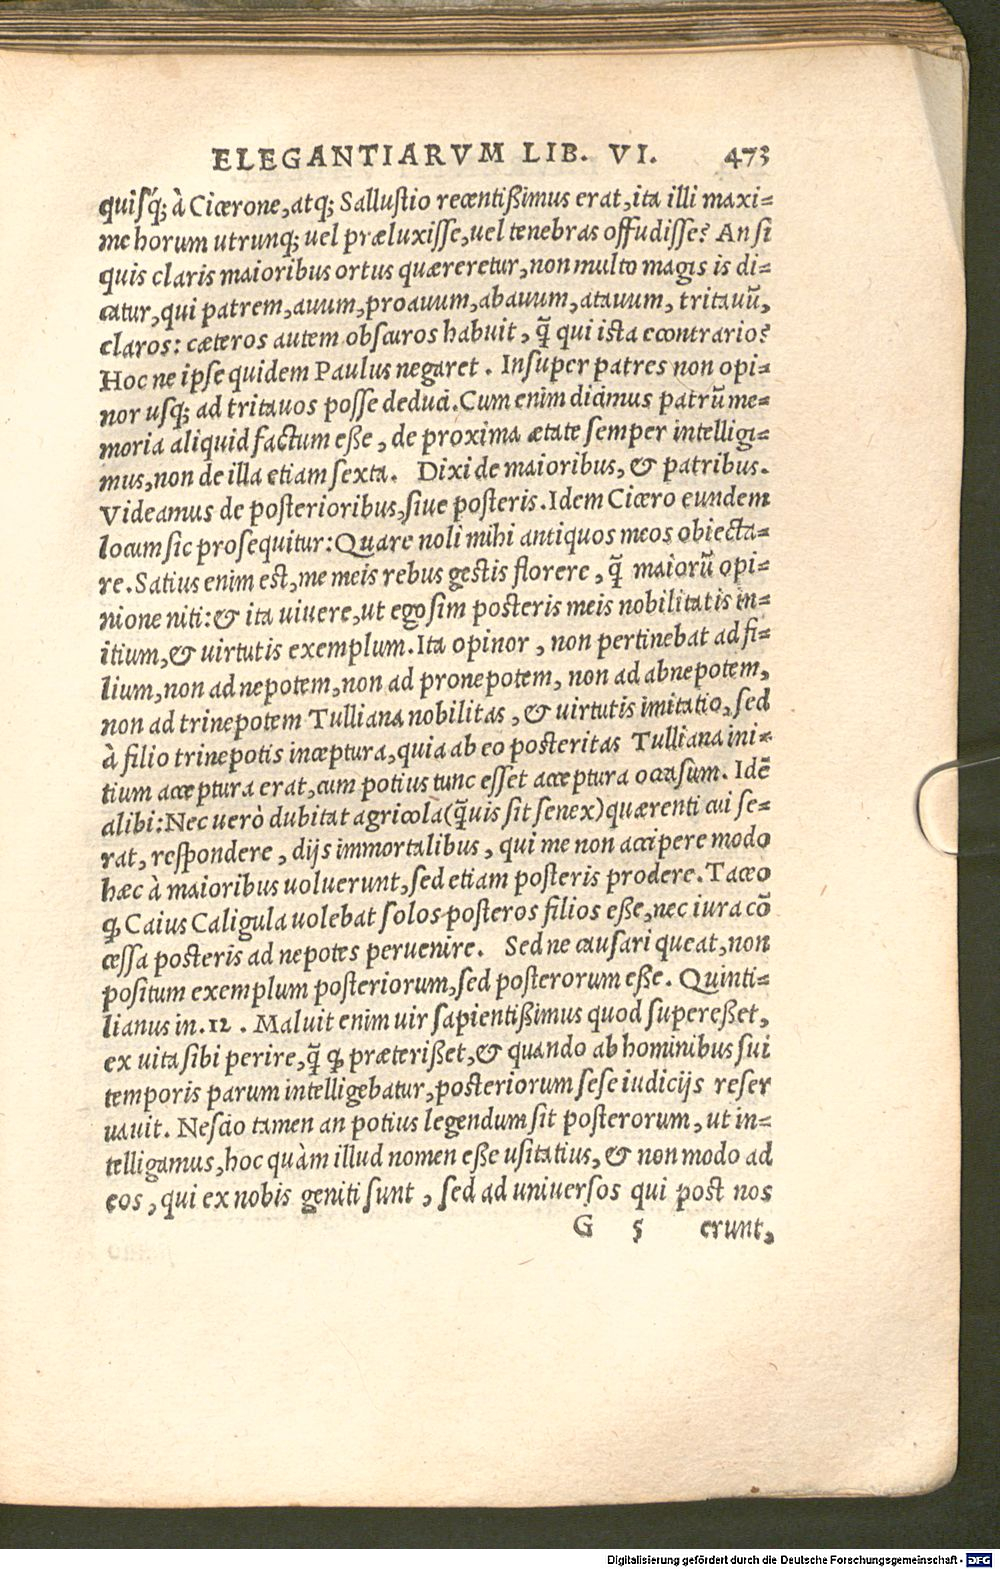 ELEGANTIARVM LIB. VI. 473
quisq́; à Cicerone, atq; Sallustio recentißimus erat, ita illi maxi=
me horum utrunq; uel præluxisse, uel tenebras offudisse? An si
quis claris maioribus ortus quæreretur, non multo magis is di=
catur, qui patrem, auum, proauum, abauum, atauum, tritauũ,
claros: cæteros autem obscuros habuit, q̃ qui ista econtrario?
Hoc ne ipse quidem Paulus negaret. Insuper patres non opi=
nor usq; ad tritauos posse deduci. Cum enim dicimus patrũ me=
moria aliquid factum eße, de proxima ætate semper intelligi=
mus, non de illa etiam sexta. Dixi de maioribus, & patribus.
Videamus de posterioribus, siue posteris. Idem Cicero eundem
locum sic prosequitur: Quare noli mihi antiquos meos obiecta=
re. Satius enim est, me meis rebus gestis florere, q̃ maiorũ opi=
nione niti: & ita uiuere, ut ego sim posteris meis nobilitatis in=
itium, & uirtutis exemplum. Ita opinor, non pertinebat ad fi=
lium, non ad nepotem, non ad pronepotem, non ad abnepotem,
non ad trinepotem Tulliana nobilitas, & uirtutis imitatio, sed
à filio trinepotis inceptura, quia ab eo posteritas Tulliana ini=
tium acceptura erat, cum potius tunc esset acceptura occasum. Idẽ
alibi: Nec uerò dubitat agricola (q̃uis sit senex) quærenti cui se=
rat, respondere, dijs immortalibus, qui me non accipere modo
hæc à maioribus uoluerunt, sed etiam posteris prodere. Taceo
ꝙ Caius Caligula uolebat solos posteros filios eße, nec iura cõ
cessa posteris ad nepotes peruenire. Sed ne causari queat, non
positum exemplum posteriorum, sed posterorum eße. Quinti=
lianus in .12. Maluit enim uir sapientißimus quod supereßet,
ex uita sibi perire, q̃ ꝙ præterißet, & quando ab hominibus sui
temporis parum intelligebatur, posteriorum sese iudicijs reser
uauit. Nescio tamen an potius legendum sit posterorum, ut in=
telligamus, hoc quàm illud nomen eße usitatius, & non modo ad
eos, qui ex nobis geniti sunt, sed ad uniuersos qui post nos
G 5 erunt,
Digitalisierung gefördert durch die Deutsche Forschungsgemeinschaft - DFG